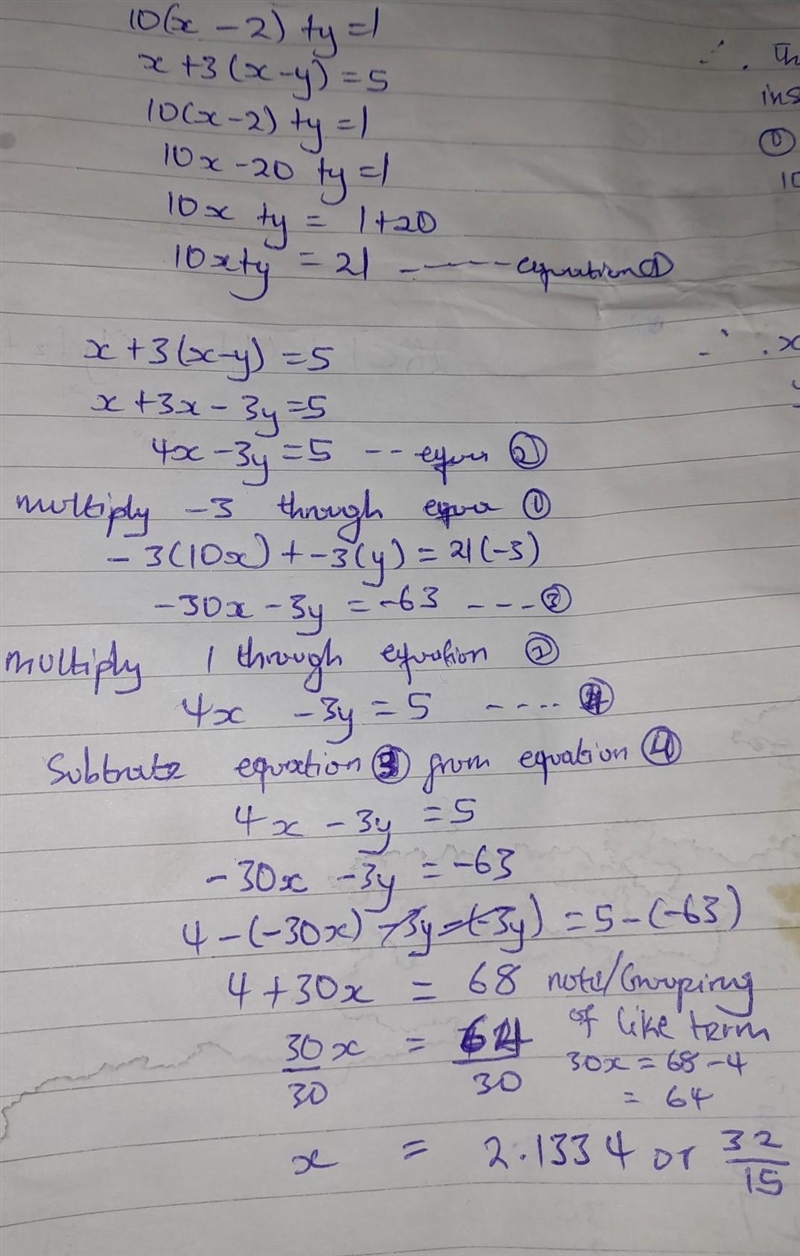 10(x - 2) +y =1
x +3 (x-y) = 5
10(x-2) +y =1
10x -20 +y =1
10x +y = 1+20
10x+y = 21 ------ equation ①
x +3(x-y) =5
x +3x - 3y =5
4x -3y =5 -- equn ②
multiply -3 through equa ①
-3(10x) + -3(y) = 21(-3)
-30x -3y = -63 ---- ③
multiply 1 through equation ②
4x -3y = 5 .... ④
Subtrate equation ③ from equation ④
4x - 3y = 5
-30x -3y = -63
4-(-30x) -3y-(-3y) = 5-(-63)
4 +30x = 68 note/Grouping
of like term
30x/30 = 64/30
30x = 68 -4
= 64
x = 2.1334 or 32/15
∴ Th
ins
①
10
∴ x
y